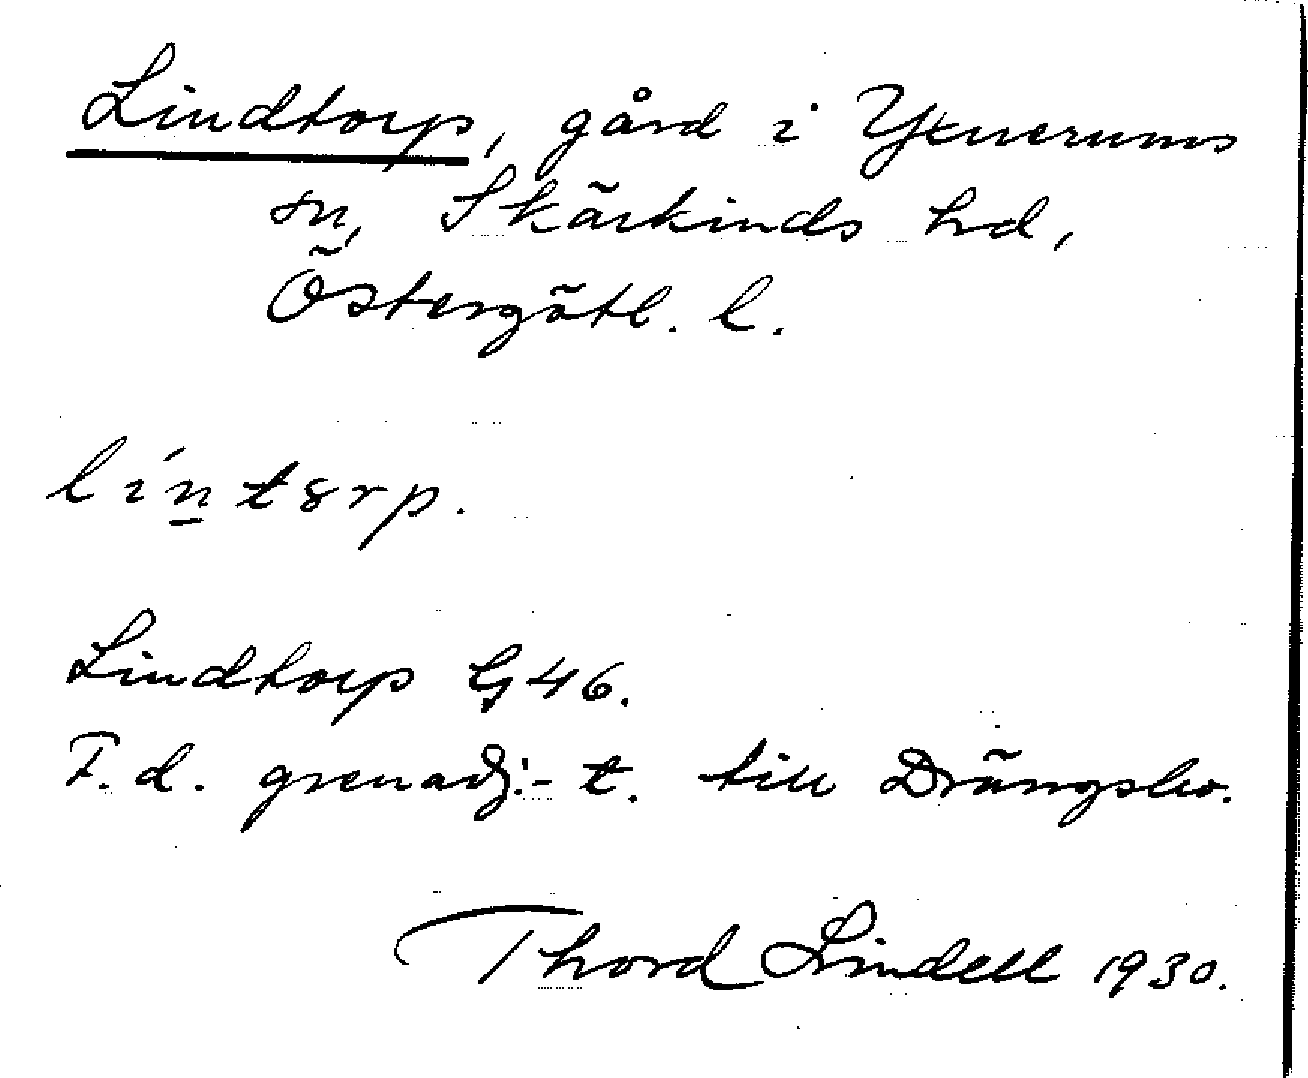 Lindtorp, gård i Yxnerums
sn, Skärkinds hd,
Östergötl. l.
líntơrp.
Lindtorp G 46.
F. d. grenadj:-t. till Drängsbo.
Thord Lindell 1930.